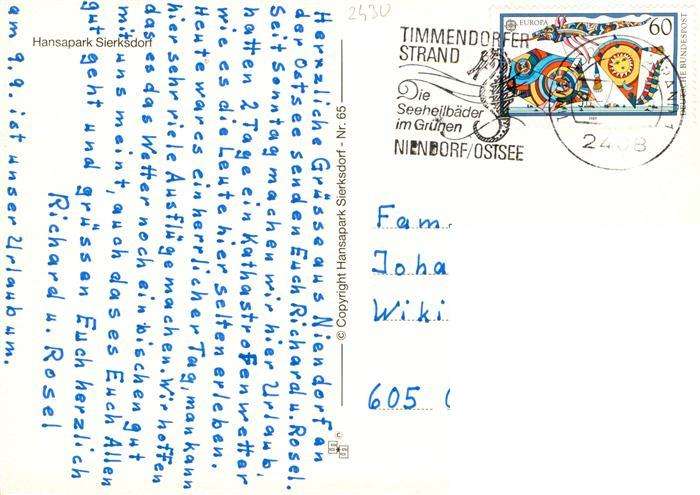 Hansapark Sierksdorf
Herzliche Grüsse aus Niendorf an
der Ostsee senden Euch Richard u. Rosel.
Seit Sonntag machen wir hier Urlaub,
hatten 2 Tage ein Kathastrofenwetter
wie es die Leute hier selten erleben.
Heute war es ein herrlicher Tag, man kann
hier sehr viele Ausflüge machen. Wir hoffen
das es das Wetter noch ein bischen gut
mit uns meint, auch das es Euch Allen
gut geht und grüssen Euch herzlich
Richard u. Rosel
am 9.9. ist unser Urlaub um.
© Copyright Hansapark Sierksdorf - Nr. 65
2430
TIMMENDORFER
STRAND
Die
Seeheilbäder
im Grünen
NIENDORF/OSTSEE
EUROPA
60
DEUTSCHE BUNDESPOST
1989
STRAND 1
2408
Fam.
Joha
Wiki
605